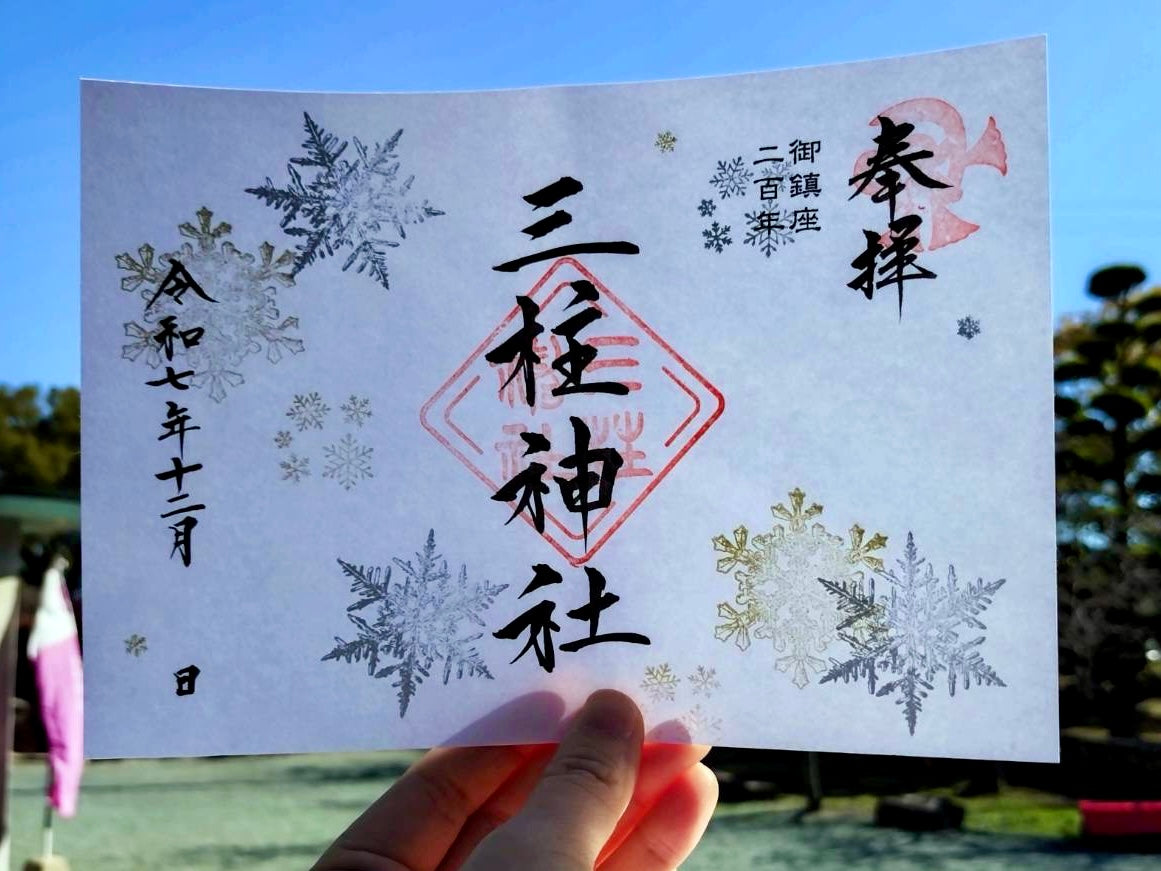 奉拝
御鎮座
二百年
三柱神社
三柱
神社
令和七年十二月　日